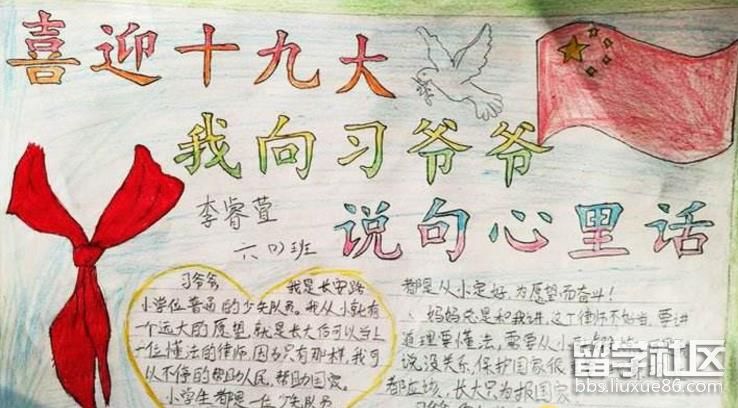 喜迎十九大
我向习爷爷
说句心里话
李睿萱
六(4)班
习爷爷 我是长安路
小学位普通的少先队员。我从小就有
一个远大的愿望,就是长大后可以当上
一位懂法的律师,因为只有那样,我可
以不停的帮助人民,帮助国家。
小学生都是一位少先队员
都是从小定好,为愿望而奋斗!
妈妈总是和我讲,这个律师不好当,要讲
道理要懂法,需要从小
说没关系,保护国家很
都应该,长大只为报国家
留学社区
bbs.liuxue86.com